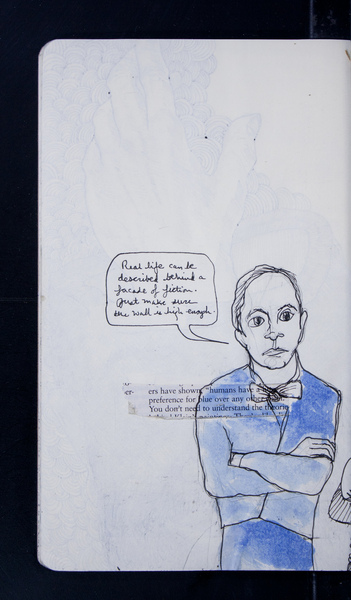 Real life can be
described behind a
facade of fiction.
Just make sure
the wall is high enough.
er-
ers have shown, "humans have a
preference for blue over any other
You don't need to understand the theorie